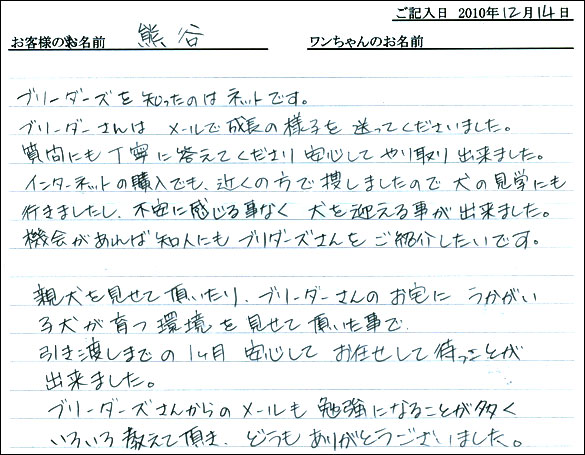 ご記入日 2010年12月14日
お客様のお名前 熊谷 ワンちゃんのお名前
ブリーダーズを知ったのはネットです。
ブリーダーさんは メールで成長の様子を送ってくださいました。
質問にも丁寧に答えてくださり安心してやり取り出来ました。
インターネットの購入でも、近くの方で捜しましたので犬の見学にも
行きましたし、不安に感じる事なく犬を迎える事が出来ました。
機会があれば知人にもブリダーズさんをご紹介したいです。
親犬を見せて頂いたり、ブリーダーさんのお宅にうかがい
子犬が育つ環境を見せて頂いた事で、
引き渡しまでの1ヶ月 安心してお任せして待つことが
出来ました。
ブリーダーズさんからのメールも勉強になることが多く
いろいろ教えて頂き、どうもありがとうございました。